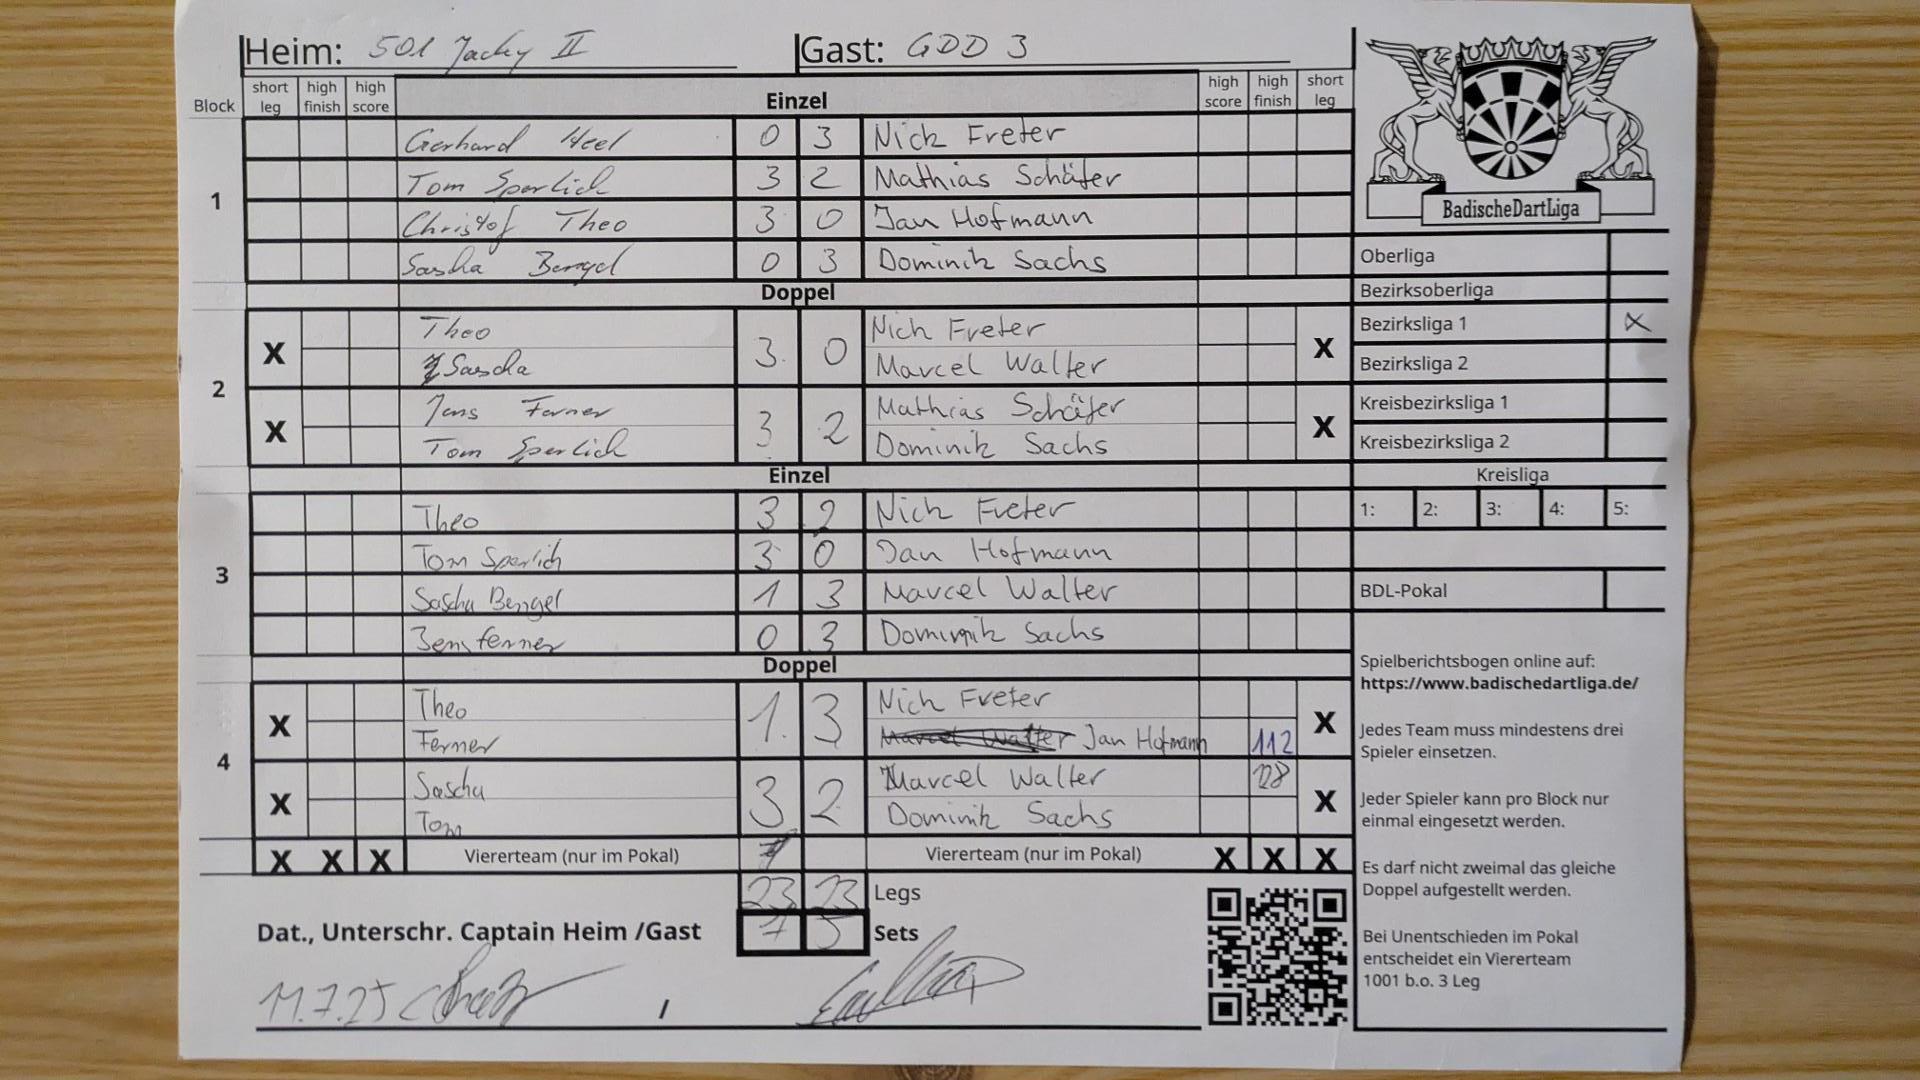 Heim: 501 Jacky II Gast: GDD 3
Block short leg high finish high score Einzel high score high finish short leg
1
Gerhard Heel 0 3 Nick Freter
Tom Sperlich 3 2 Mathias Schäfer
Christof Theo 3 0 Jan Hofmann
Sascha Bengel 0 3 Dominik Sachs
Doppel
2
X Theo 3 0 Nick Freter X
Sascha Marcel Walter
X Jens Ferner 3 2 Mathias Schäfer X
Tom Sperlich Dominik Sachs
Einzel
3
Theo 3 2 Nick Freter
Tom Sperlich 3 0 Jan Hofmann
Sascha Bengel 1 3 Marcel Walter
Jens ferner 0 3 Dominik Sachs
Doppel
4
X Theo 1 3 Nick Freter X
Ferner Marcel Walter Jan Hofmann 112
X Sascha 3 2 Marcel Walter 128 X
Tom Dominik Sachs
X X X Viererteam (nur im Pokal) Viererteam (nur im Pokal) X X X
23 23 Legs
Dat., Unterschr. Captain Heim /Gast 7 5 Sets
11.7.25 /
BadischeDartLiga
Oberliga
Bezirksoberliga
Bezirksliga 1 X
Bezirksliga 2
Kreisbezirksliga 1
Kreisbezirksliga 2
Kreisliga
1: 2: 3: 4: 5:
BDL-Pokal
Spielberichtsbogen online auf:
https://www.badischedartliga.de/
Jedes Team muss mindestens drei
Spieler einsetzen.
Jeder Spieler kann pro Block nur
einmal eingesetzt werden.
Es darf nicht zweimal das gleiche
Doppel aufgestellt werden.
Bei Unentschieden im Pokal
entscheidet ein Viererteam
1001 b.o. 3 Leg